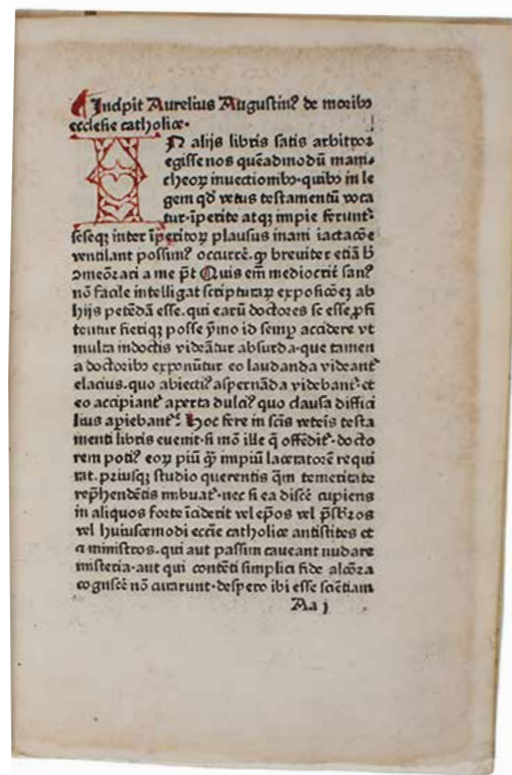 Incipit Aurelius Augustinꝰ de moribꝰ
ecclesie catholice.
IN alijs libris satis arbitror
egisse nos quēadmodū mani-
cheoꝝ inuectionibꝰ.quibꝰ in le
gem qđ vetus testamentū voca
tur.īperite atqꝫ impie ferunt᷑
seseqꝫ inter īperitoꝝ plausus inani iactācōe
ventilant possimꝰ occurrē.qꝫ breuiter etiā
ꝯmeōrati a me pt̄ Quis em̄ mediocrit̄ sanꝰ
nō facile intelligat scripturaꝝ expositōeꝫ ab
hijs petēdā esse.qui earū doctores se esse ꝓfi
tentur fieriqꝫ posse ymo id semꝑ accidere vt
multa indoctis videātur absurda.que tamen
a doctoribꝰ exponūtur eo laudanda videant᷑
elacius.quo abiectiꝰ aspernāda videbant᷑.et
eo accipiant᷑ aperta dulciꝰ quo clausa diffici
lius apiebant᷑. Hoc fere in scīs veteis testa
menti libris euenit.si mō ille q̄ offēdit᷑.docto
rem potiꝰ eoꝝ piū qꝫ impiū laceratorē requi
rat.priusqꝫ studio querentis qm̄ temeritate
rep̄hendētis imbuat᷑.nec si ea discē cupiens
in aliquos forte īciderit vel ep̄os vel p̄sbr̄os
vel huiuscemodi ecc̄ie catholice antistites et
a ministros.qui aut passim caueant nudare
misteria.aut qui contēti simplici fide alcōra
cognscē nō curarunt.despero ibi esse sciētiam
Aa j